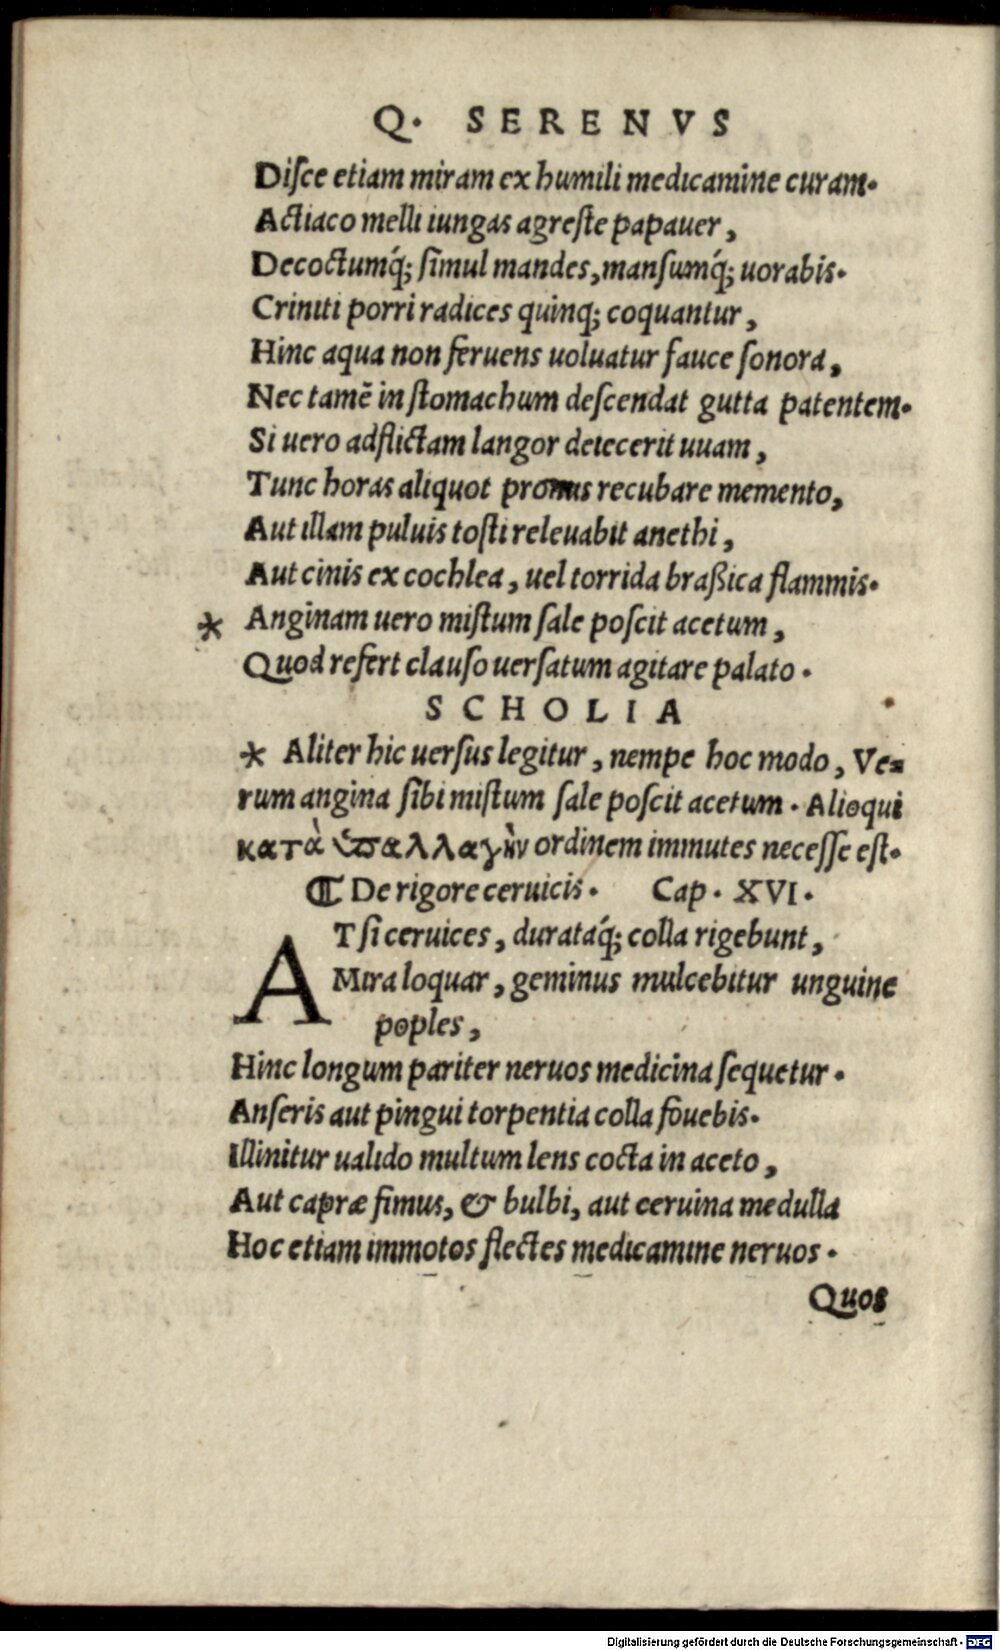 Q. SERENVS
Disce etiam miram ex humili medicamine curam.
Actiaco melli iungas agreste papauer,
Decoctumq́; simul mandes, mansumq́; uorabis.
Criniti porri radices quinq; coquantur,
Hinc aqua non feruens uoluatur fauce sonora,
Nec tamē in stomachum descendat gutta patentem.
Si uero adflictam langor deiecerit uuam,
Tunc horas aliquot pronus recubare memento,
Aut illam puluis tosti releuabit anethi,
Aut cinis ex cochlea, uel torrida braßica flammis.
* Anginam uero mistum sale poscit acetum,
Quod refert clauso uersatum agitare palato.
SCHOLIA
* Aliter hic uersus legitur, nempe hoc modo, Ve=
rum angina sibi mistum sale poscit acetum. Alioqui
κατὰ ὑπαλλαγὴν ordinem immutes necesse est.
¶ De rigore ceruicis. Cap. XVI.
AT si ceruices, durataq́; colla rigebunt,
Mira loquar, geminus mulcebitur unguine
poples,
Hinc longum pariter neruos medicina sequetur.
Anseris aut pingui torpentia colla fouebis.
Illinitur ualido multum lens cocta in aceto,
Aut capræ fimus, & bulbi, aut ceruina medulla
Hoc etiam immotos flectes medicamine neruos.
Quos
Digitalisierung gefördert durch die Deutsche Forschungsgemeinschaft - DFG